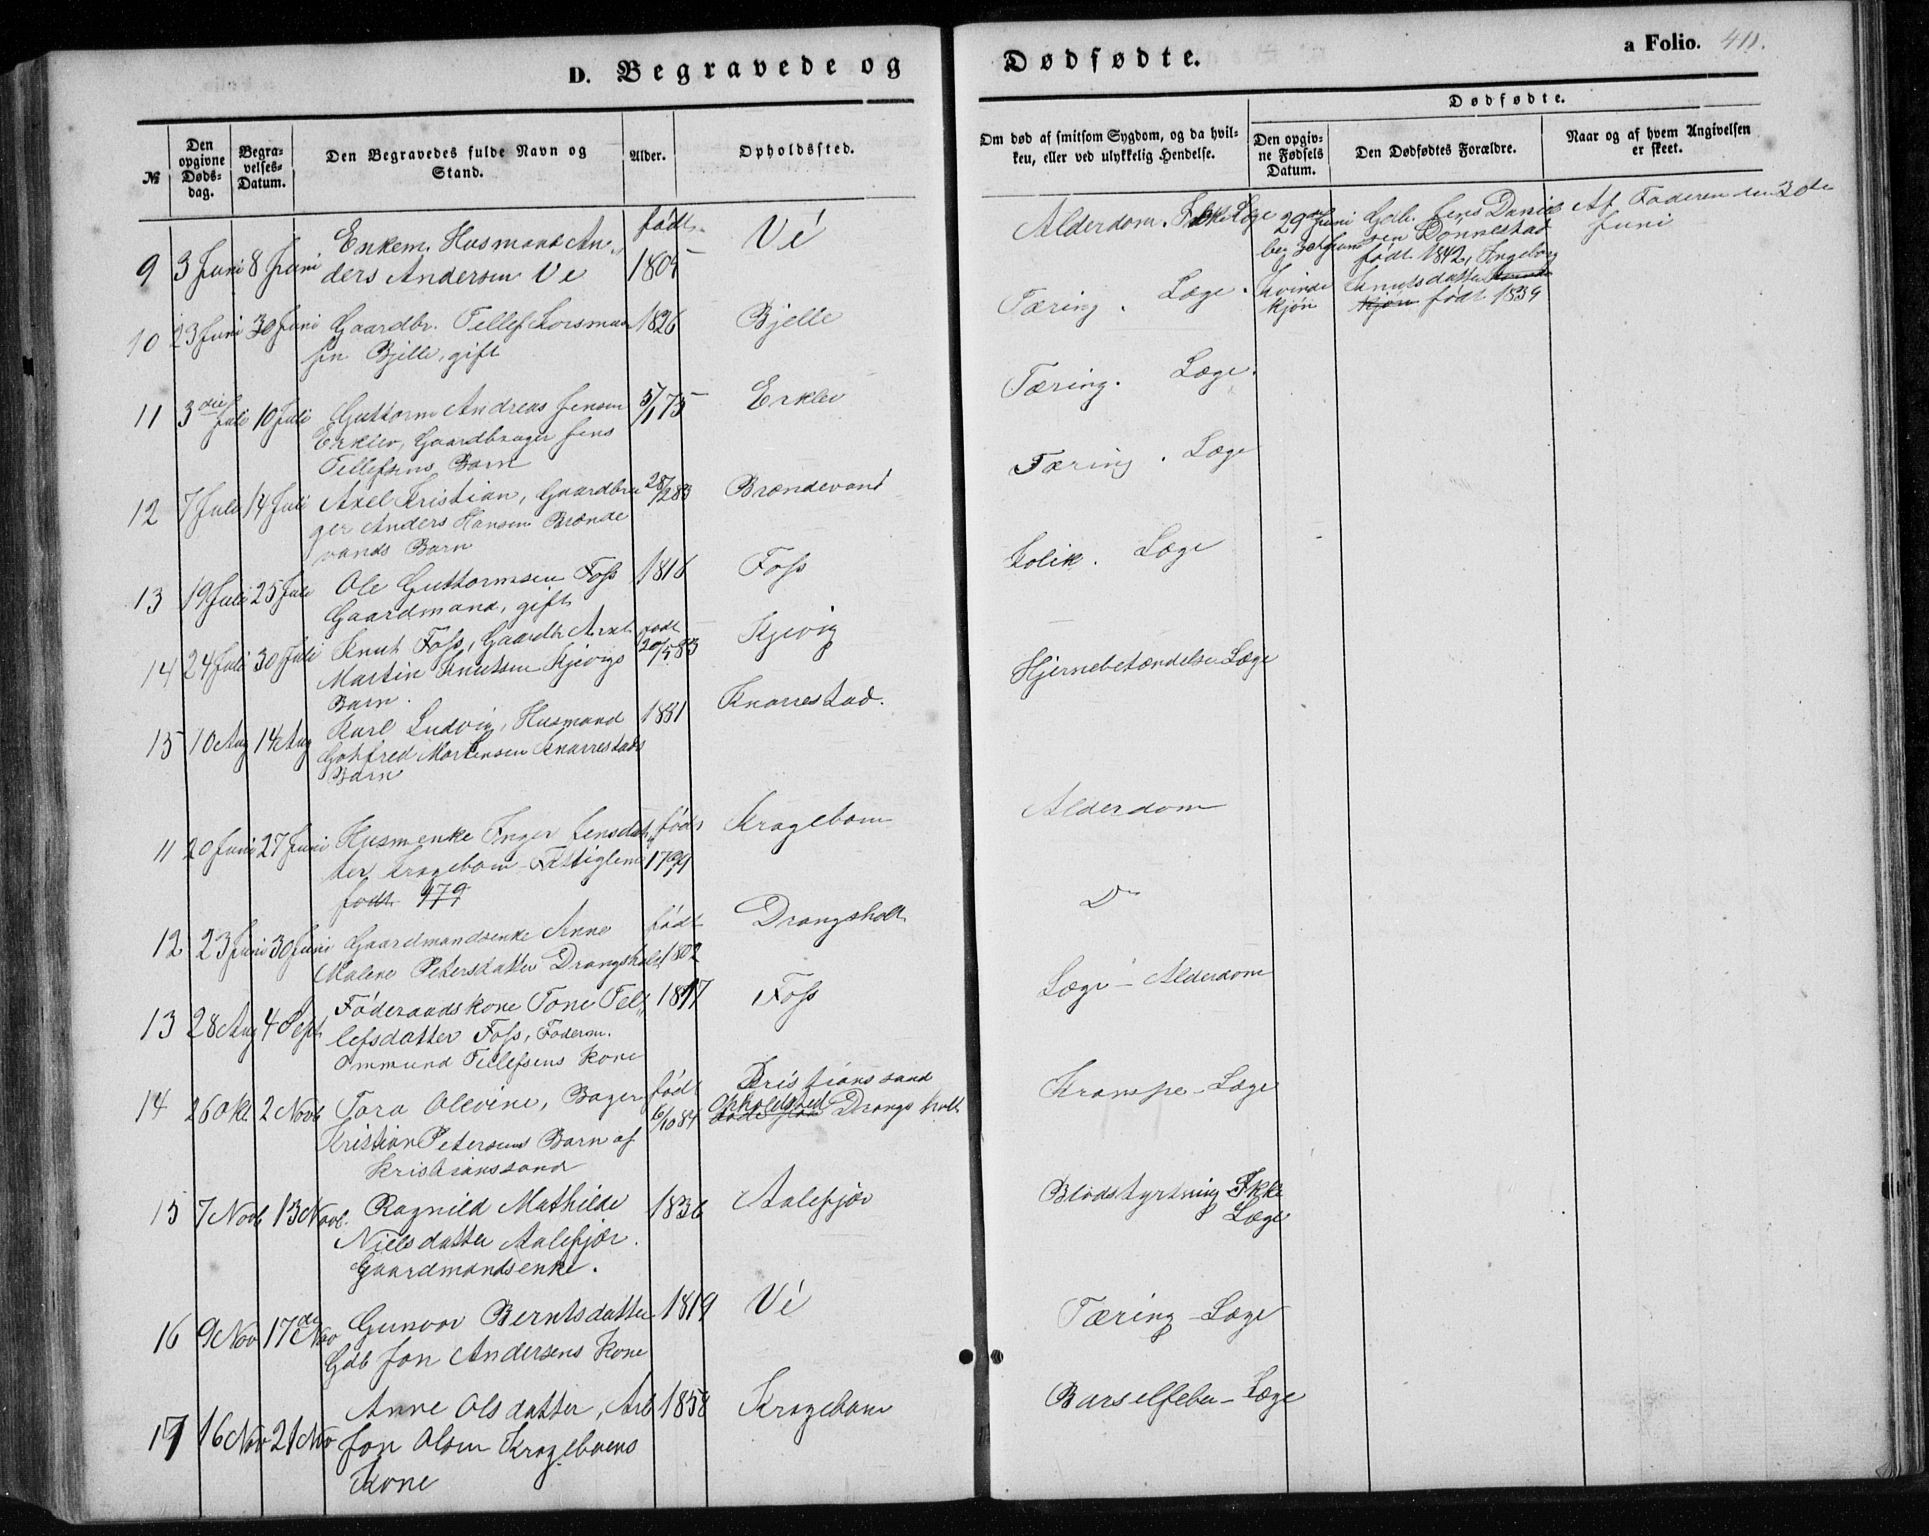 D. Begravede og Dødfødte.
a Folio. 411.
№
Den opgivne Døds-dag.
Begra-velses-Datum.
Den Begravedes fulde Navn og Stand.
Alder.
Opholdssted.
Om død af smitsom Sygdom, og da hvil-
ken, eller ved ulykkelig Hendelse.
Dødfødte.
Den opgiv-
ne Fødsels
Datum.
Den Dødfødtes Forældre.
Naar og af hvem Angivelsen
er skeet.
9 3 Juni 8 Juni Enkem. Husmand An-
ders Andersen Ve
født 1805
Vé
Alderdom. Ikke Læge
29 Juni
beg 30te Juni
Kvinde
kjøn
Gdb. Jens Daniel
sen Dønnestad
født 1842, Ingeborg
Knutsdatter
kjøn født 1839
Af Faderen den 30te
Juni
10 23 Juni 30 Juni Gaardbr. Tellef
sen Bjelle, gift
1826
Bjelle
Tæring. Læge.
11 3die Juli 10 Juli Guttorm Andreas Jensen
Erklev, Gaardbruger Jens
Tellefsens Barn
5/1 75
Erklev
Tæring. Læge.
12 7 Juli 14 Juli Axel Kristian, Gaardbru
ger Anders Hansen Brænde
vands Barn
28/2 83
Brændevand
Tæring. Læge
13 19 Juli 25 Juli Ole Guttormsen Foss
Gaardmand, gift
1816
Foss
Kolik. Læge
14 24 Juli 30 Juli Knut Foss, Gaardbr
Martin Knutsen Kjevigs
Barn.
født 20/5 83
Kjevig
Hjernebetændelse Læge
15 10 Aug 14 Aug Karl Ludvig, Husmand
Gotfred Mortensen Knarrestads
Barn
1881
Knarrestad.
11 20 Juni 27 Juni Husmenke Inger Jensdat
ter Kragebom - Fattiglem
født 179
født 1799
Kragebom
Alderdom
12 23 Juni 30 Juni Gaardmandsenke Anne
Malene Petersdatter Drangsholt
født 1802
Drangsholt
Do
13 28 Aug 4 Sept Føderaadskone Tone Tel-
lefsdatter Foss, Føderm.
Ommund Tellefsens Kone
1817
Foss
Læge - Alderdom
14 26 Okt. 2 Novb Tora Olevine, Bager
Kristian Petersens Barn af
Kristianssand
født 6/10 84
Kristianssand
Opholdsted Drangsholt
Krampe - Læge
15 7 Novb 13 Novb. Ragnild Mathilde
Nielsdatter Aalefjær.
Gaardmandsenke.
1836
Aalefjær
Blodstyrtning Ikke
Læge
16 9 Nov 17de Nov Gunvor Berntsdatter
Gdb Jon Andersens Kone
1819
Vé
Tæring - Læge
17 16 Nov 21 Nov Anne Olsdatter, Arb
Jon Olsen Krageboens
Kone
1858
Kragebom
Barselfeber - Læge